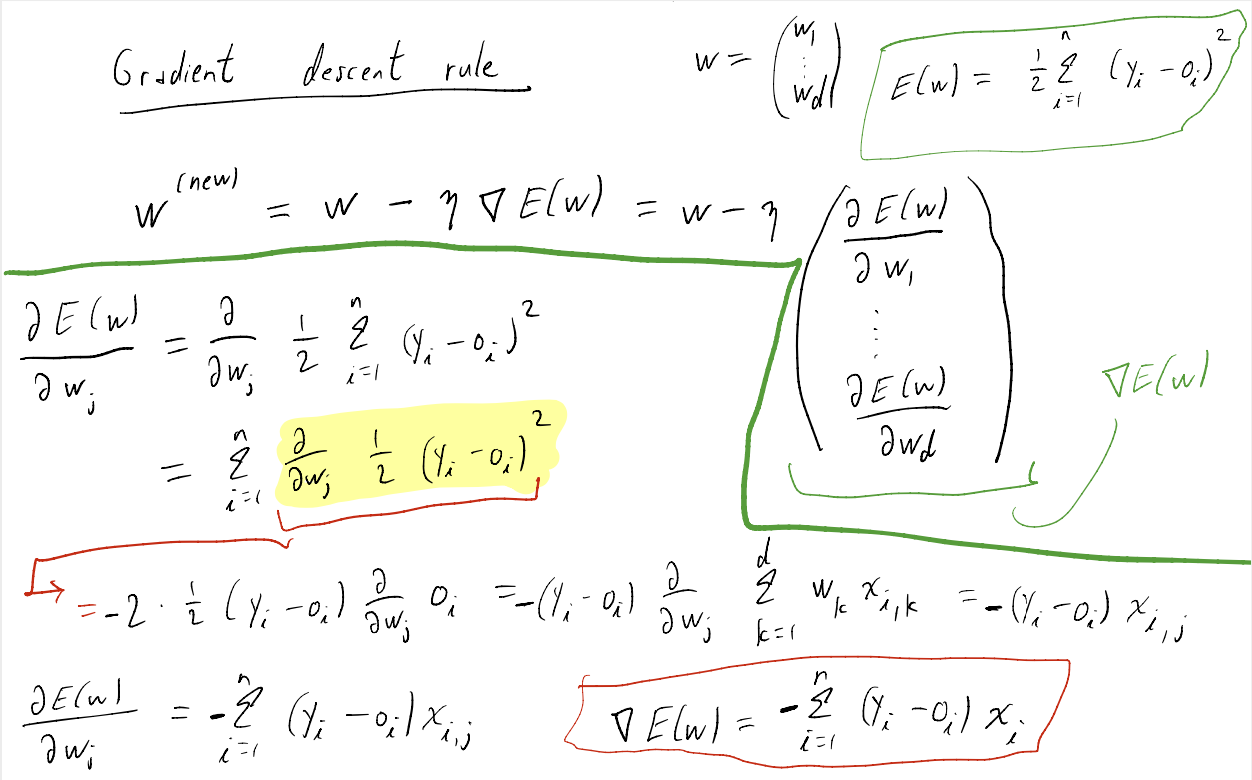 Gradient descent rule
w = (w₁ ⋮ w_d)
E(w) = ½ Σ_{i=1}^{n} (y_i − o_i)²
w^{(new)} = w − η ∇E(w) = w − η (∂E(w)/∂w₁ ⋮ ∂E(w)/∂w_d)
∇E(w)
∂E(w)/∂w_j = ∂/∂w_j ½ Σ_{i=1}^{n} (y_i − o_i)²
= Σ_{i=1}^{n} ∂/∂w_j ½ (y_i − o_i)²
= −2 · ½ (y_i − o_i) ∂/∂w_j o_i = −(y_i − o_i) ∂/∂w_j Σ_{k=1}^{d} w_k x_{i,k} = −(y_i − o_i) x_{i,j}
∂E(w)/∂w_j = −Σ_{i=1}^{n} (y_i − o_i) x_{i,j}
∇E(w) = −Σ_{i=1}^{n} (y_i − o_i) x_i